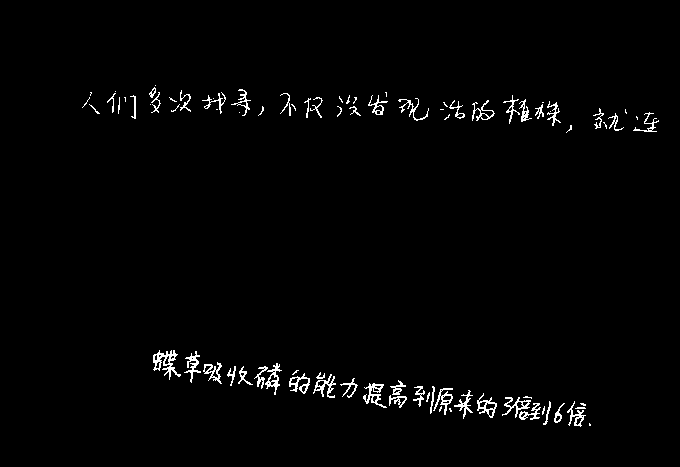 人们多次找寻，不仅没发现活的植株，就连
蝶草吸收磷的能力提高到原来的3倍到6倍.